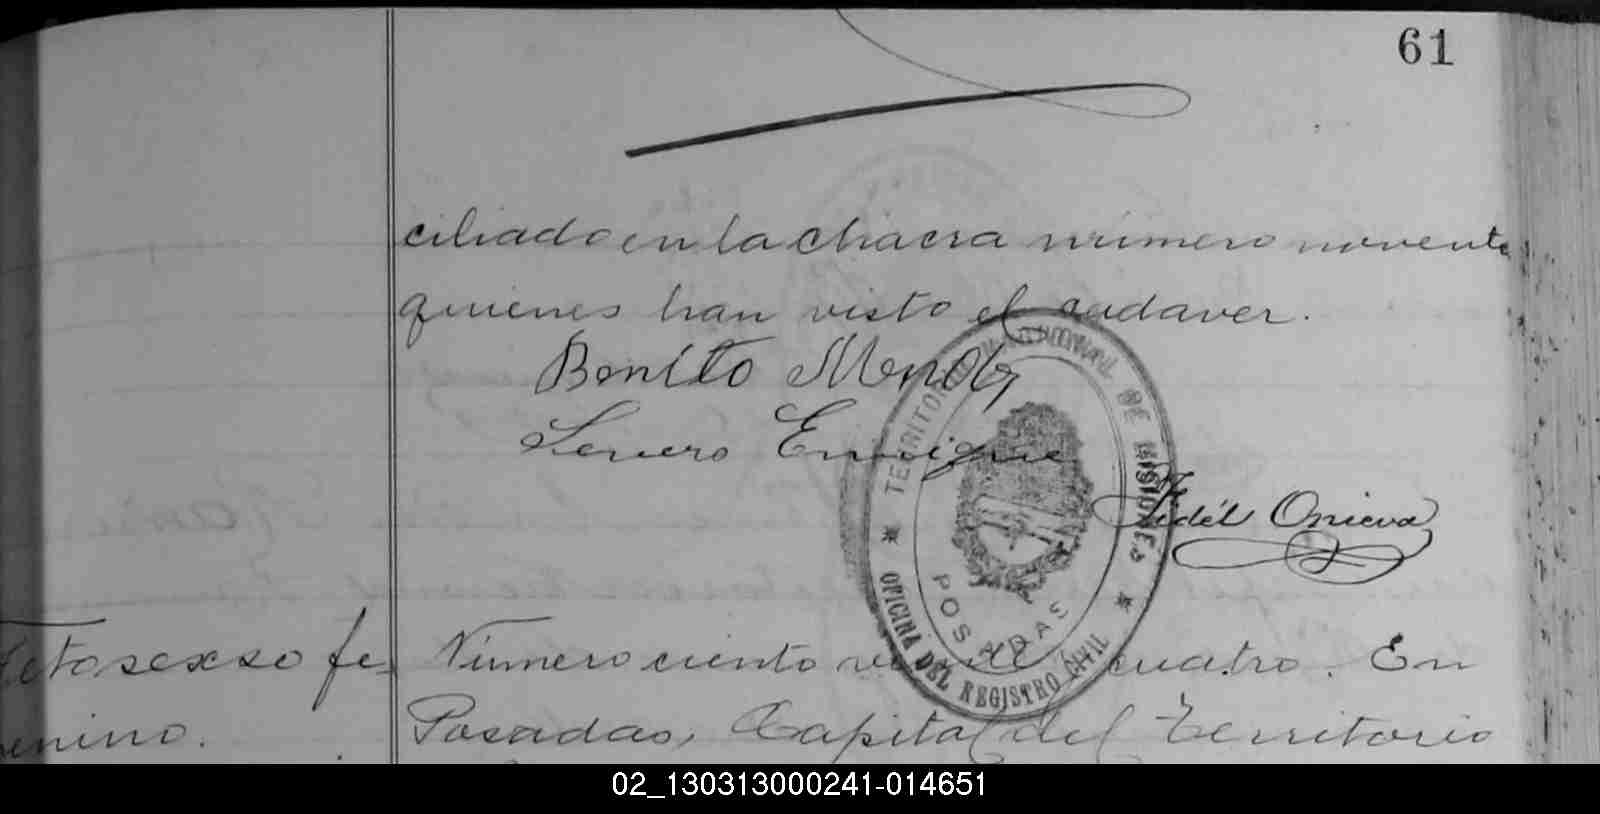 61
ciliado en la chacra número noventa
quienes han visto el cadaver.
Benito Mendez
Severo Enrique
Fidél Onieva
TERRITORIO NACIONAL DE MISIONES
POSADAS
OFICINA DEL REGISTRO CIVIL
Feto sexso fe-
menino.
Número ciento veinte cuatro. En
Posadas, Capital del Territorio
02_130313000241-014651